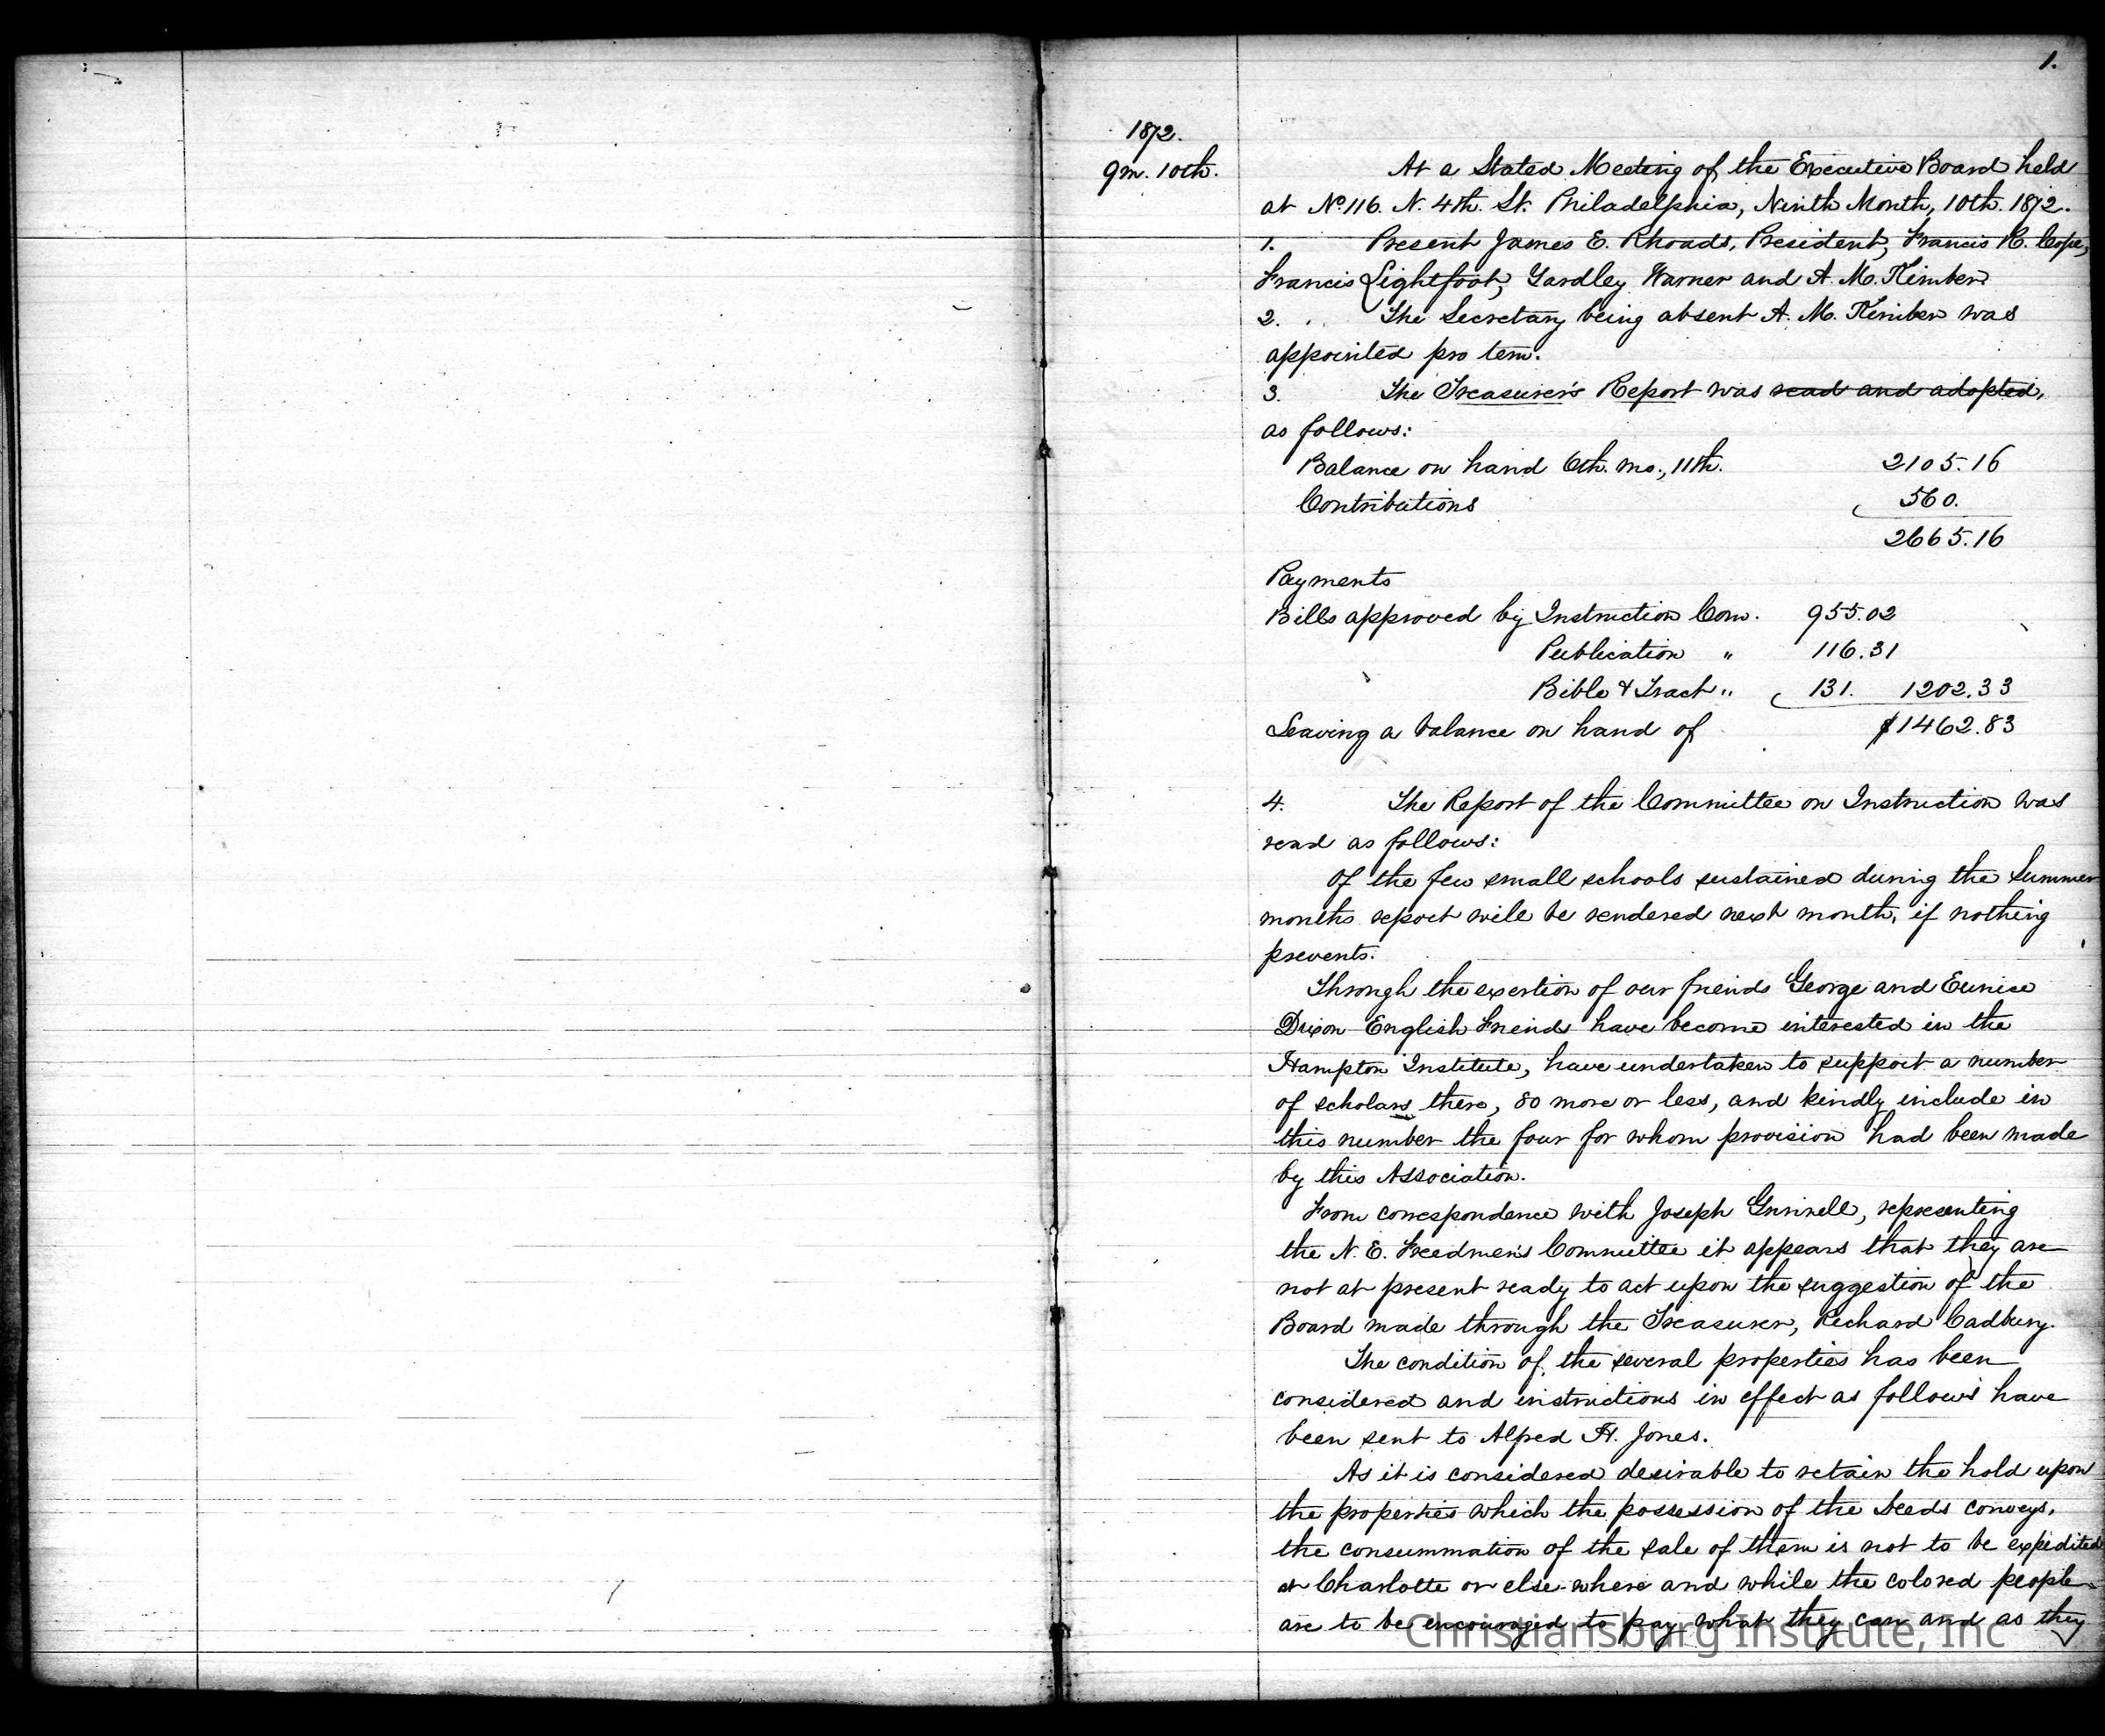 1.
1872.
9m. 10th.
At a Stated Meeting of the Executive Board held
at No. 116. N. 4th. St. Philadelphia, Ninth Month, 10th. 1872.
1. Present James E. Rhoads, President, Francis R. Cope,
Francis Lightfoot, Yardley Warner and A. M. Kimber
2. The Secretary being absent A. M. Kimber was
appointed pro tem.
3. The Treasurer's Report was read and adopted,
as follows:
Balance on hand 6th. mo., 11th. 2105.16
Contributions 560.
2665.16
Payments
Bills approved by Instruction Com. 955.02
Publication " 116.31
Bible & Tract " 131. 1202.33
Leaving a balance on hand of $1462.83
4. The Report of the Committee on Instruction was
read as follows:
Of the few small schools sustained during the Summer
months report will be rendered next month, if nothing
prevents.
Through the exertion of our friends George and Eunice
Dixon English Friends have become interested in the
Hampton Institute, have undertaken to support a number
of scholars there, 80 more or less, and kindly include in
this number the four for whom provision had been made
by this Association.
From correspondence with Joseph Grinnell, representing
the N. E. Freedmen's Committee it appears that they are
not at present ready to act upon the suggestion of the
Board made through the Treasurer, Richard Cadbury.
The condition of the several properties has been
considered and instructions in effect as follows have
been sent to Alfred H. Jones.
As it is considered desirable to retain the hold upon
the properties which the possession of the Deeds conveys,
the consummation of the sale of them is not to be expedited
at Charlotte or else-where and while the colored people
are to be encouraged to pay what they can and as they
Christiansburg Institute, Inc